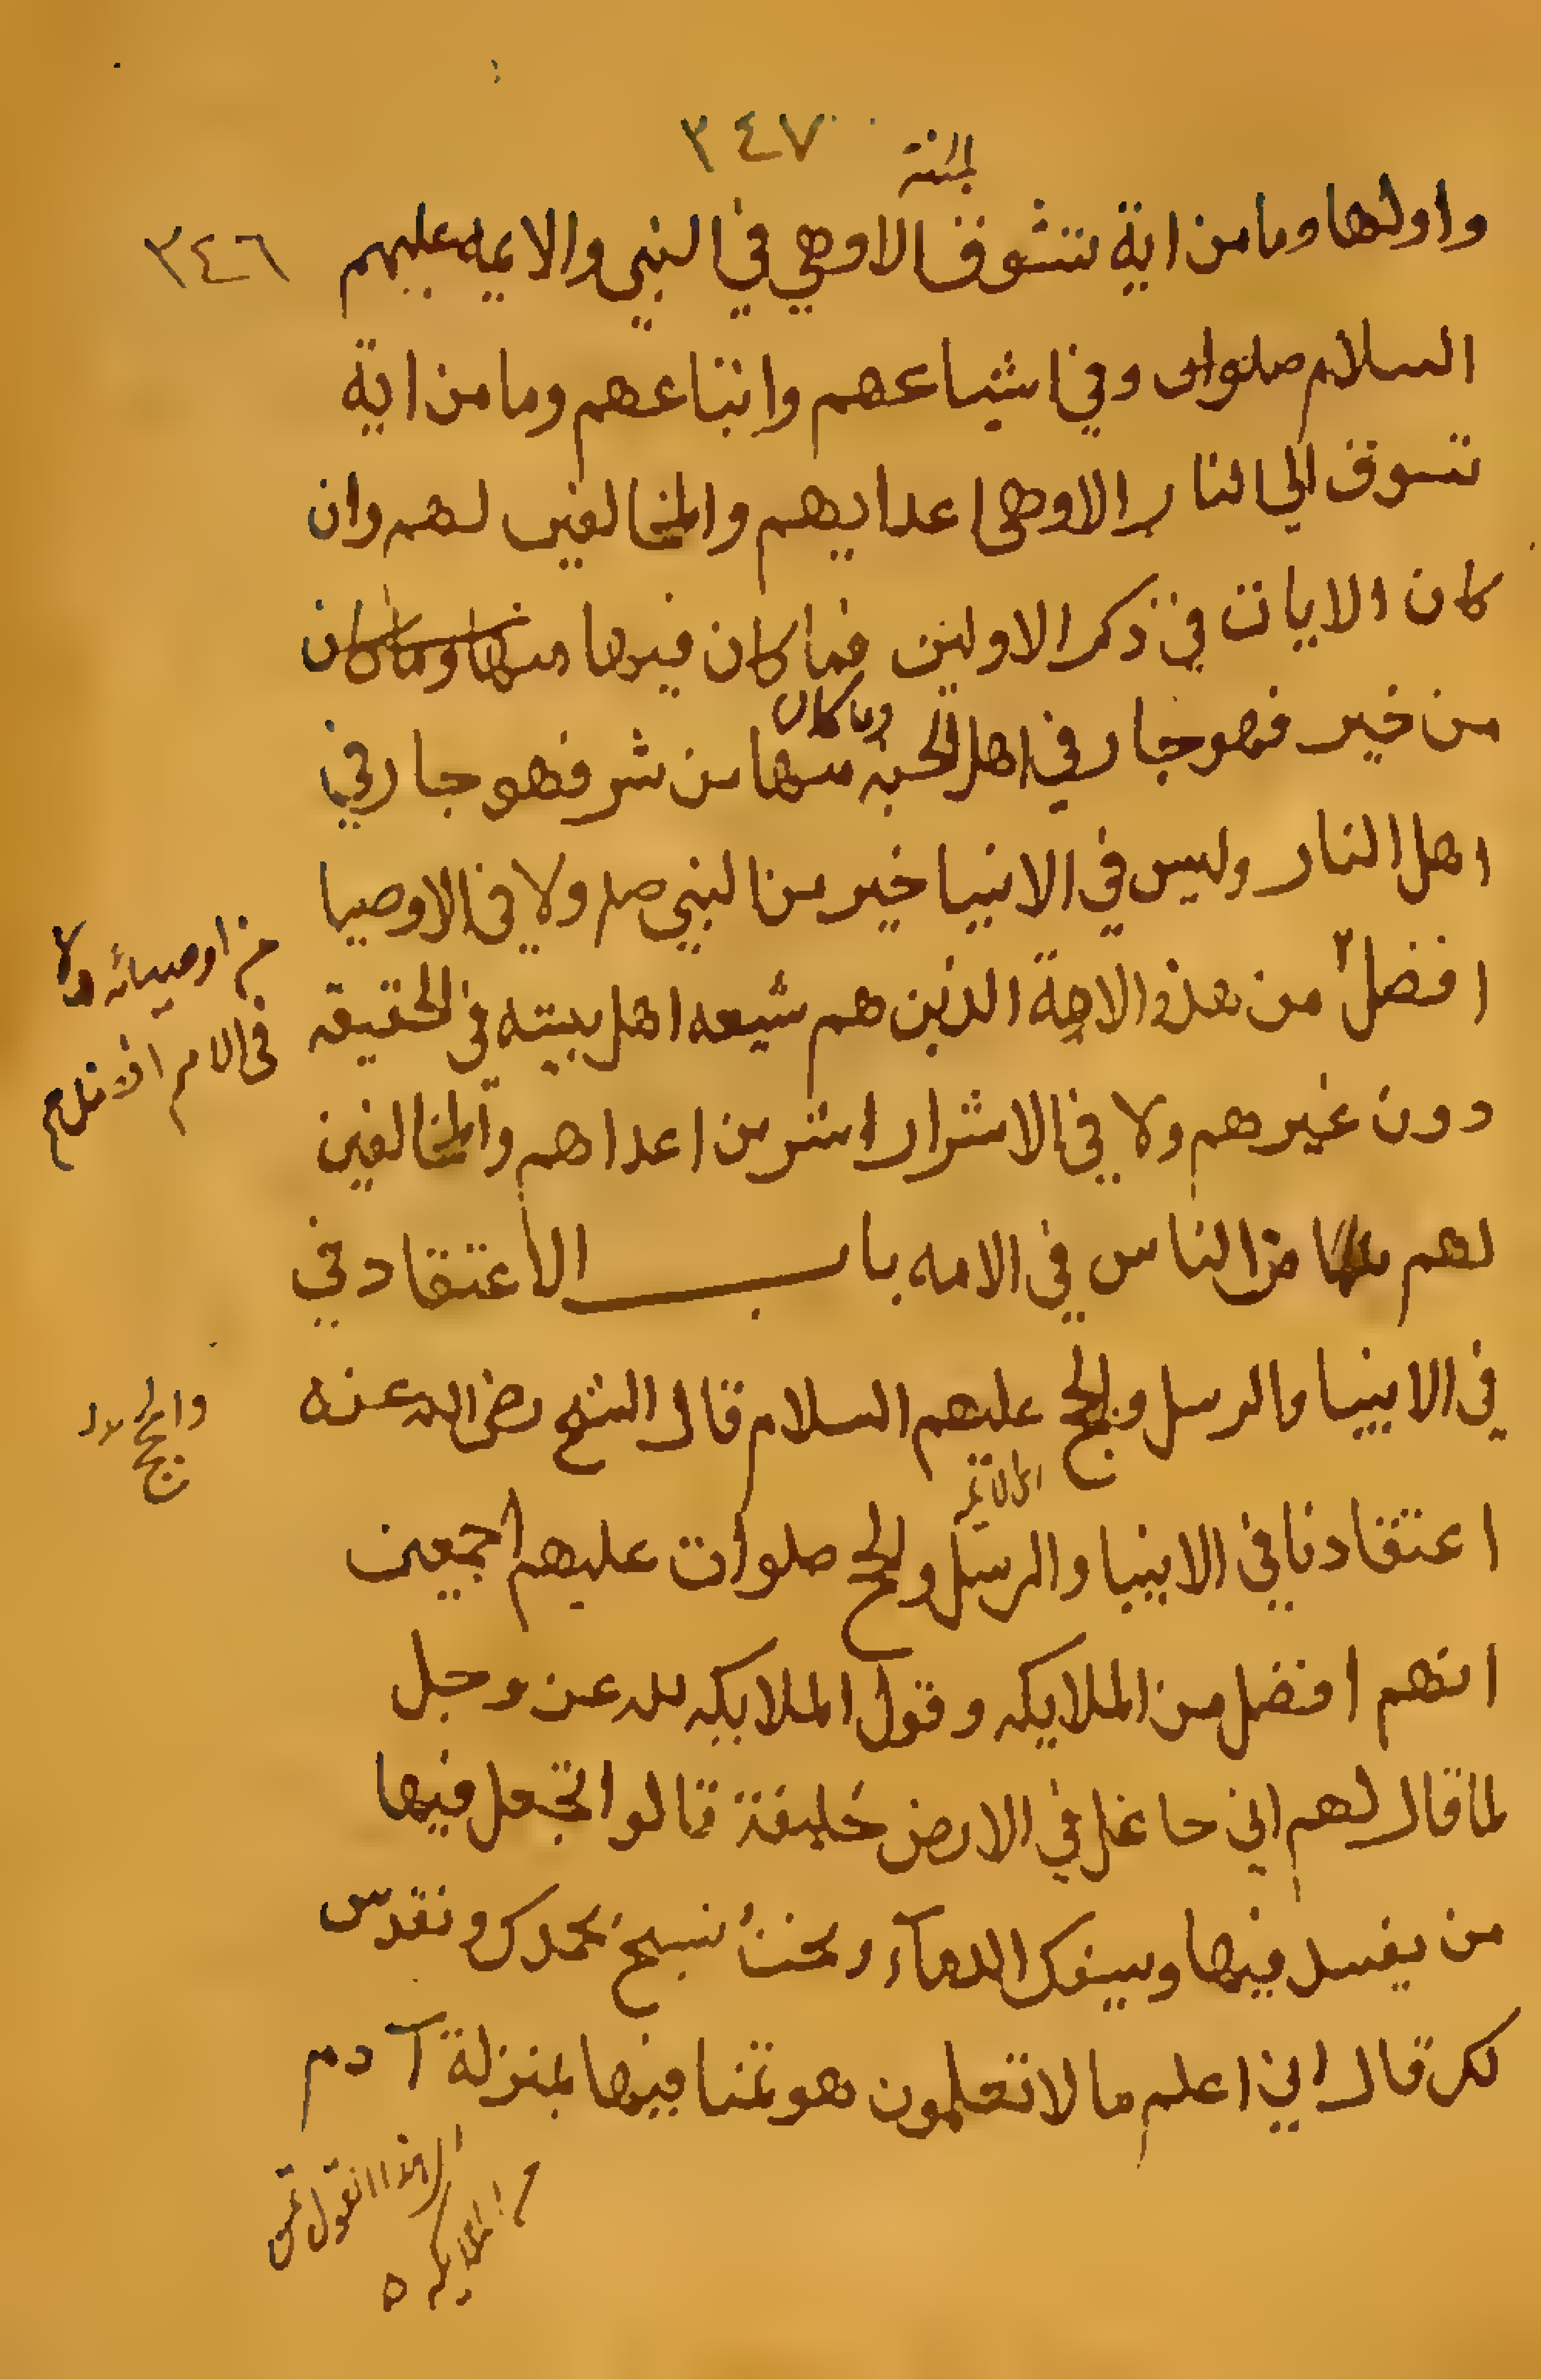 ٣٤٧
الجنة
واولها وما من اية تتشوف الا وهي في النبي والايمه عليهم
٣٤٦
السلام صلوات وفي اشياعهم واتباعهم وما من اية
تسوق الي النار الا وهي اعدايهم والمخالفين لهم وان
كان الايات في ذكر الاولين فما كان فيرها منها وما كان
وما كان
من خير فهو جار في اهل الجنة منها من شر فهو جار في
اهل النار وليس في الانبيا خير من النبي صلم ولا في الاوصيا
من اوصيائه ولا
افضل من هذه الامة الذين هم شيعه اهل بيته في الحقيقه
في الامم افضل
دون غيرهم ولا في الاشرار اشر من اعداهم والمخالفين
لهم من الناس في الامه باب الاعتقاد في
في الانبيا والرسل والحج عليهم السلام قال الشيخ رضى الله عنه
والحجج
اعتقادنا في الانبيا والرسل والحج صلوات عليهم اجمعين
انهم افضل من الملايكه وقول الملايكه لله عز وجل
لما قال لهم اني جاعل في الارض خليفة قالوا اتجعل فيها
من يفسد فيها ويسفك الدمآء ونحن نسبح بحمدك ونقدس
لك قال اني اعلم ما لا تعلمون هو تمنا فيها بمنزلة آدم